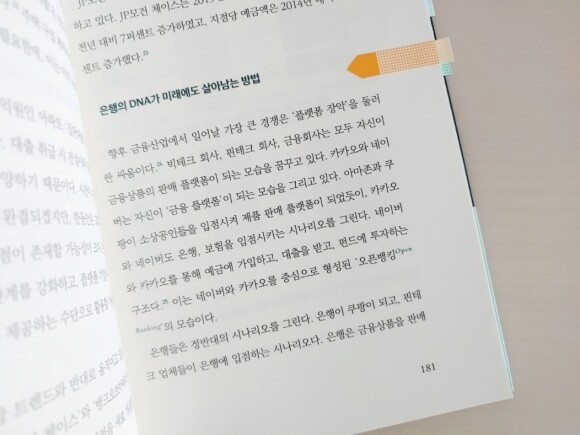 필요한데, 이는
억원인 아파트
대출 취급 시
양하기 때문이다.
완결되겠지만,
점이 존재할 가능성이
제를 강화하고, 플랫폼
제공하는 수단으로 활용
트렌드와 반대로
하고 있다. JP모건 체이스는
전년 대비 7퍼센트 증가하였고, 지점당 예금액은 2014년 대
센트 증가했다.23
은행의 DNA가 미래에도 살아남는 방법
향후 금융산업에서 일어날 가장 큰 경쟁은 '플랫폼 장악'을 둘러
싼 싸움이다.24 빅테크 회사, 핀테크 회사, 금융회사는 모두 자신이
금융상품의 판매 플랫폼이 되는 모습을 꿈꾸고 있다. 카카오와 네이
버는 자신이 '금융 플랫폼'이 되는 모습을 그리고 있다. 아마존과 쿠
팡이 소상공인들을 입점시켜 제품 판매 플랫폼이 되었듯이, 카카오
와 네이버도 은행, 보험을 입점시키는 시나리오를 그린다. 네이버
와 카카오를 통해 예금에 가입하고, 대출을 받고, 펀드에 투자하는
구조다.25 이는 네이버와 카카오를 중심으로 형성된 '오픈뱅킹Open
Banking'의 모습이다.
은행들은 정반대의 시나리오를 그린다. 은행이 쿠팡이 되고, 핀테
크 업체들이 은행에 입점하는 시나리오다. 은행은 금융상품을 판매
181